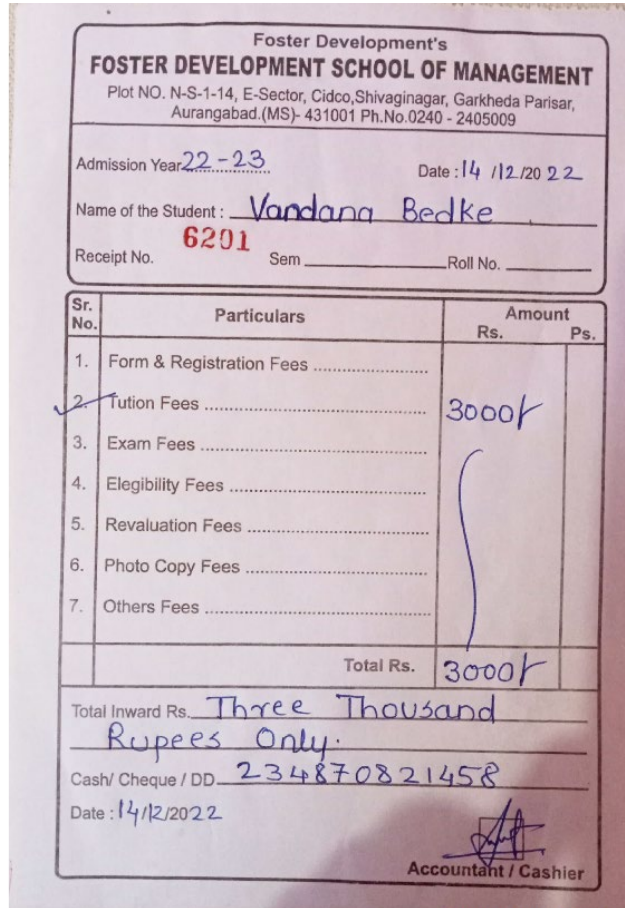 Foster Development's
FOSTER DEVELOPMENT SCHOOL OF MANAGEMENT
Plot NO. N-S-1-14, E-Sector, Cidco,Shivaginagar, Garkheda Parisar,
Aurangabad.(MS)- 431001 Ph.No.0240 - 2405009
Admission Year 22-23 Date : 14 /12/20 22
Name of the Student : Vandana Bedke
Receipt No. 6201 Sem Roll No.
Sr. No. Particulars Amount Rs. Ps.
1. Form & Registration Fees
2. Tution Fees 3000/-
3. Exam Fees
4. Elegibility Fees
5. Revaluation Fees
6. Photo Copy Fees
7. Others Fees
Total Rs. 3000/-
Total Inward Rs. Three Thousand
Rupees Only.
Cash/ Cheque / DD 234870821458
Date : 14/12/2022
Accountant / Cashier